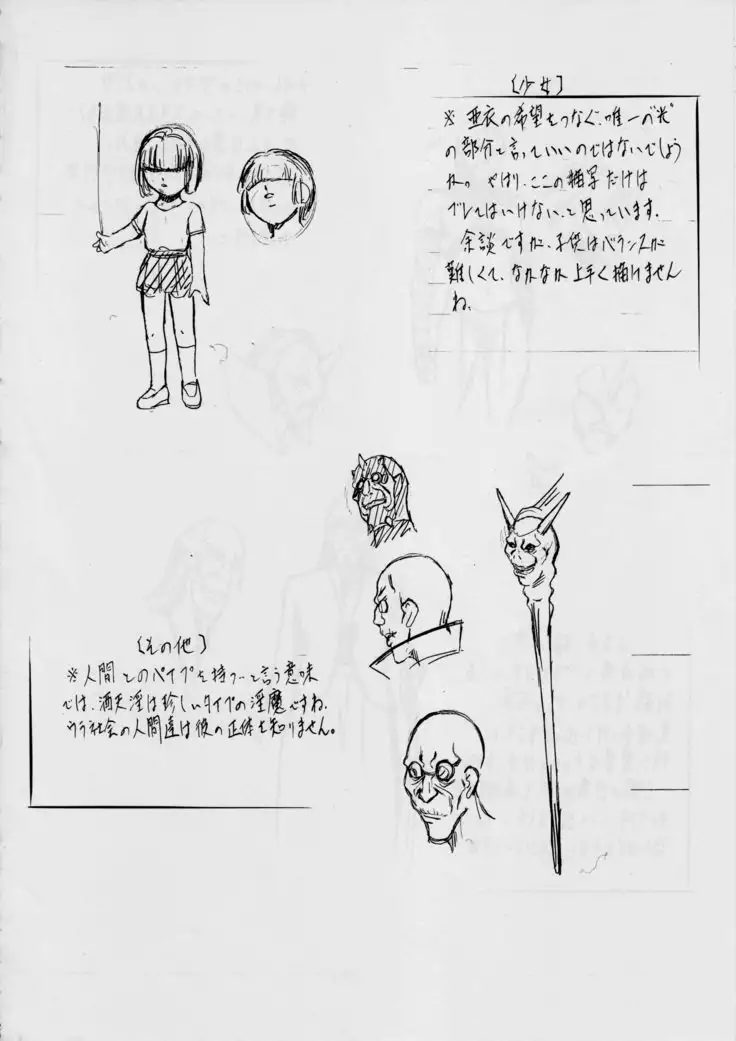 〔少女〕
※亜衣の希望をつなぐ、唯一の"光"
の部分と言っていいのではないでしょう
か。やはり、ここの描写だけは
ブレてはいけない、と思っています。
余談ですが、子供はバランスが
難しくて、なかなか上手く描けません
ね。
〔その他〕
※人間とのパイプを持つ…と言う意味
では、酒天淫は珍しいタイプの淫魔ですね。
ウラ社会の人間達は彼の正体を知りません。